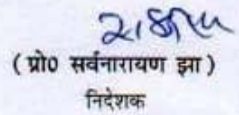 ( प्रो० सर्वनारायण झा )
निदेशक